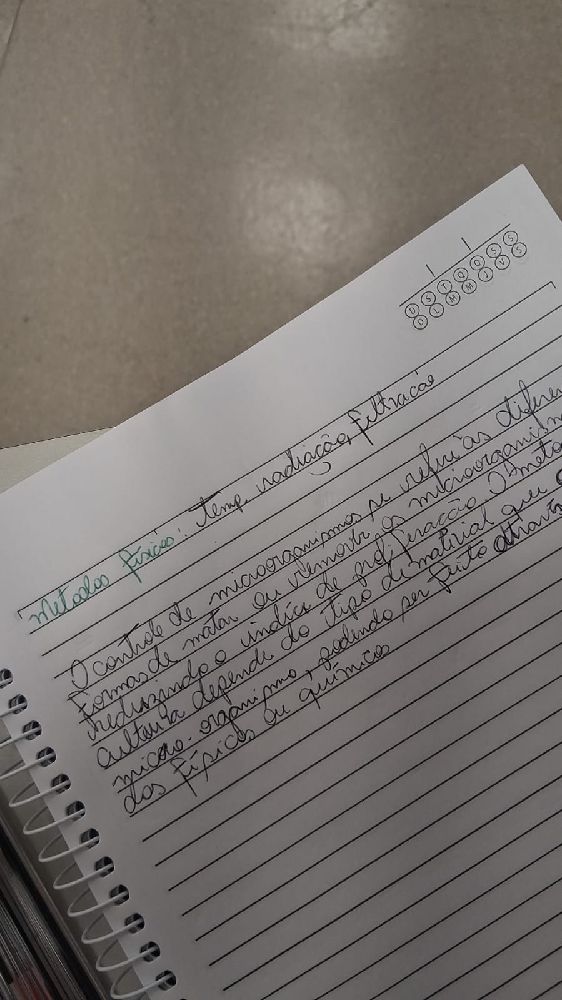 D S T Q Q S S
D L M M J V S
Métodos físicos: temp, radiação, filtração
O controle de microorganismos se refere às diferen
formas de matar ou remover os microorganism
reduzindo o índice de proliferação O meto
cultura depende do tipo de material que o
micro-organismo, podendo ser feito através
dos físicos ou químicos